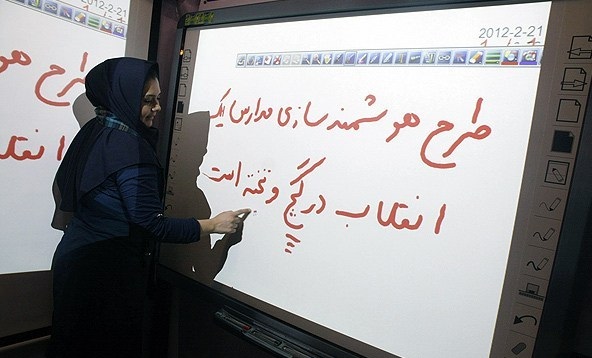 2012-2-21
طرح هوشمندسازی مدارس یک
انقلاب در گچ و تخته است
2012-2-21
طرح هو
انقلا